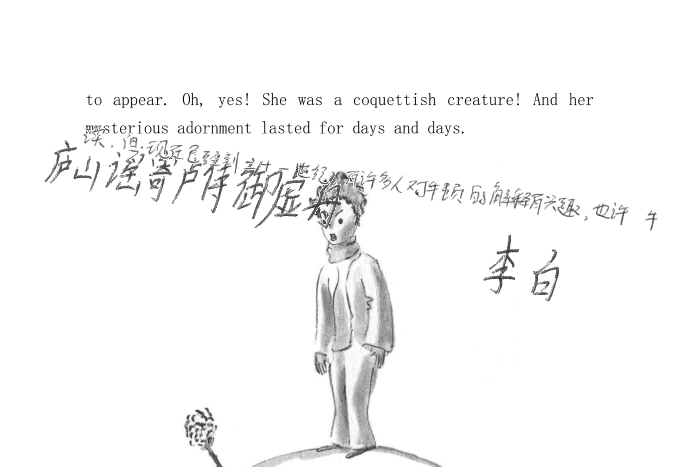 to appear. Oh, yes! She was a coquettish creature! And her
mysterious adornment lasted for days and days.
误,但,现在已经到 世纪,有许多人对牛顿的解释有兴趣,也许 牛
庐山谣寄卢侍御虚舟
李白